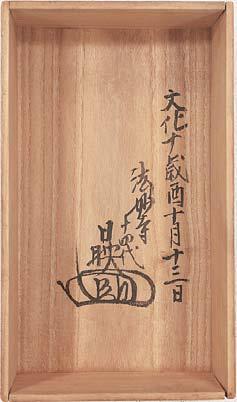 文化十歳酉十月十三日
法明寺
十四代
日映